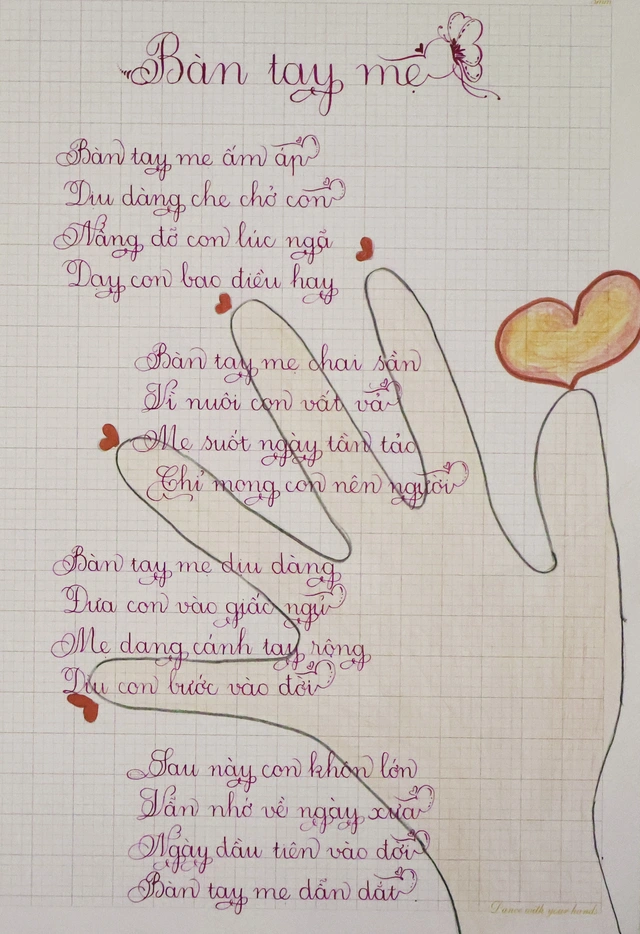 Bàn tay mẹ
Bàn tay mẹ ấm áp
Dịu dàng che chở con
Nâng đỡ con lúc ngã
Dạy con bao điều hay
Bàn tay mẹ chai sần
Vì nuôi con vất vả
Mẹ suốt ngày tần tảo
Chỉ mong con nên người
Bàn tay mẹ dịu dàng
Đưa con vào giấc ngủ
Mẹ dang cánh tay rộng
Dìu con bước vào đời
Sau này con khôn lớn
Vẫn nhớ về ngày xưa
Ngày đầu tiên vào đời
Bàn tay mẹ dẫn dắt
Dance with your hands